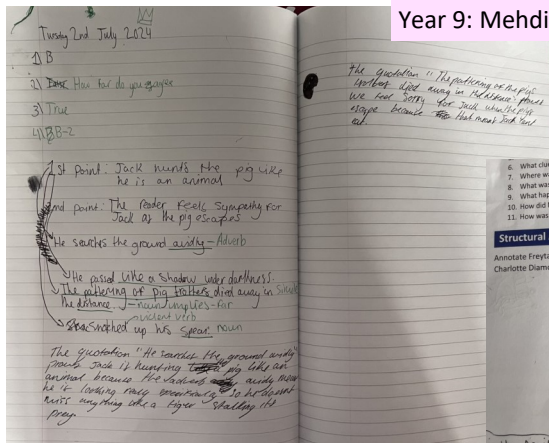 Year 9: Mehdi
Tuesday 2nd July 2024
1) B
2) How far do you agree
3) True
4) B-2
1st point: Jack hunts the pig like
he is an animal
2nd point: The reader feels sympathy for
Jack as the pig escapes
He searches the ground avidly - Adverb
He passed like a shadow under darkness.
The pattering of pig trotters died away in
the distance. - noun implies - far
violent verb
snatched up his spear noun
The quotation "He searches the ground avidly"
proves Jack is hunting pig like an
animal because the adverb avidly
he is looking so he doesnt
miss anything like a tiger stalking its
prey.
the quotation "The pattering of the pigs
trotters died away in the distance" proves
we feel sorry for Jack when the pig
escape because that meant Jack
eat.
6. What
7. Where
8. What
9. What
10. How did
11. How was
Structural
Annotate
Charlotte